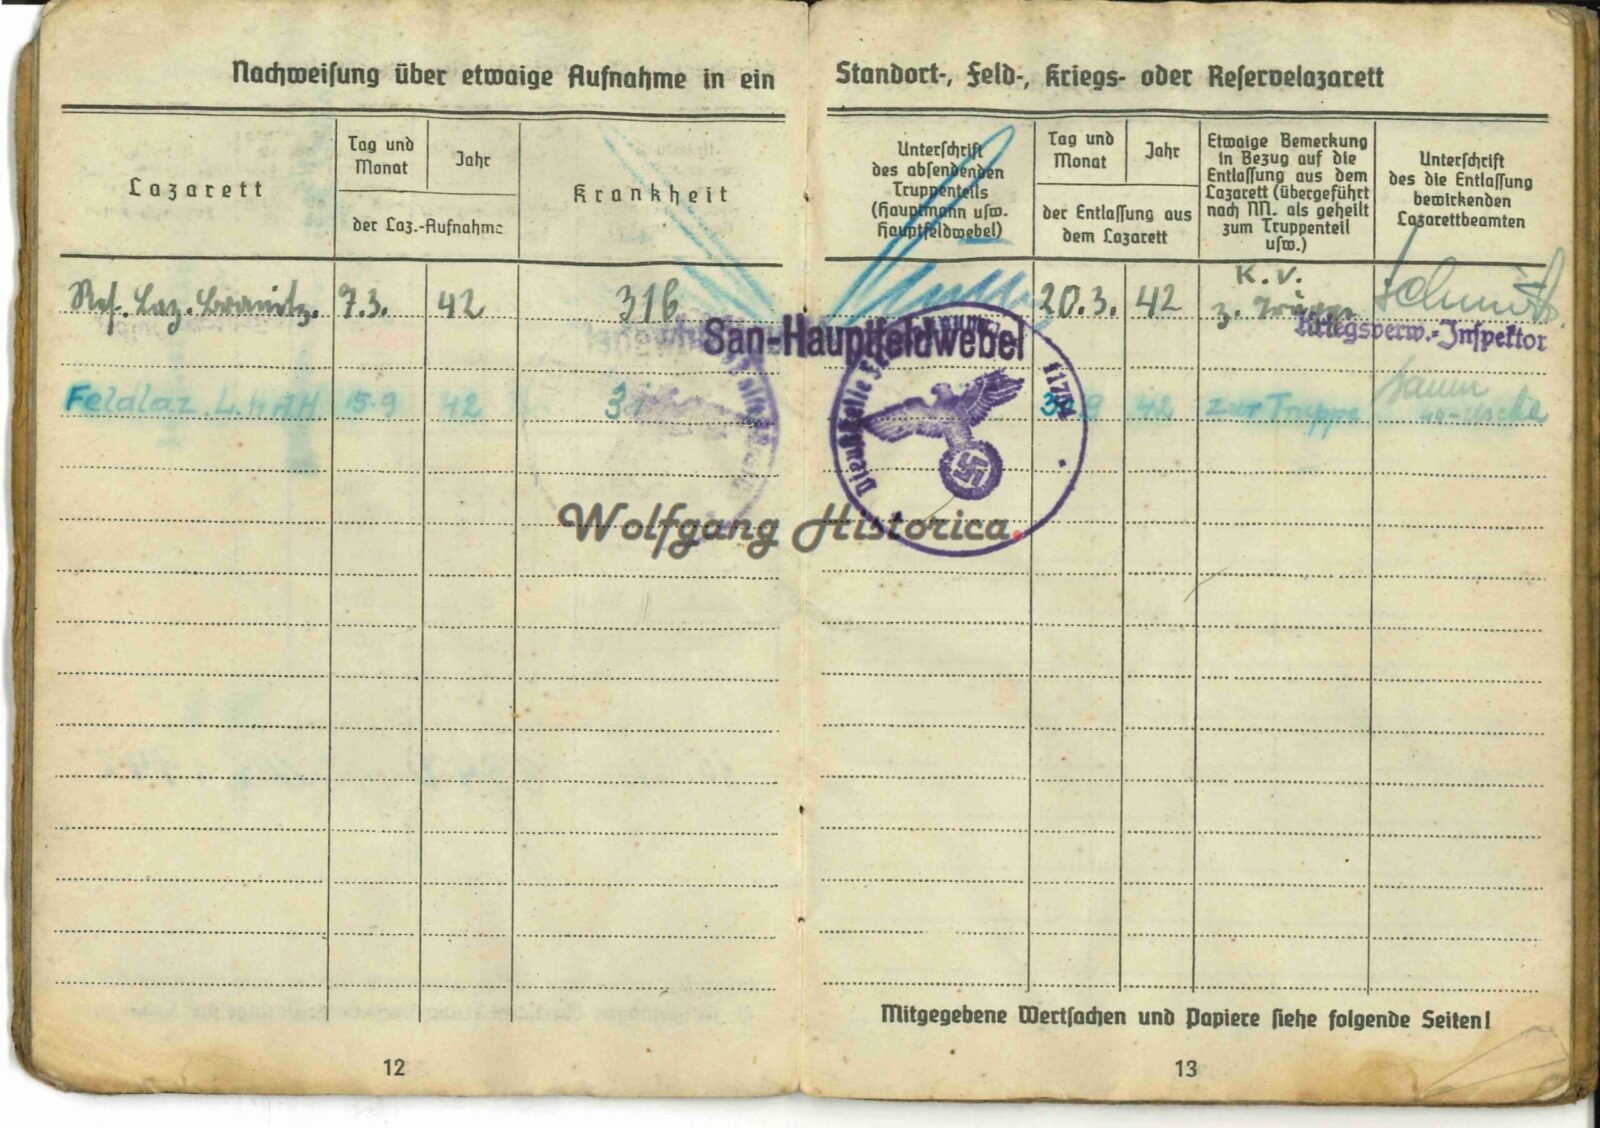 Nachweisung über etwaige Aufnahme in ein Standort-, Feld-, Kriegs- oder Reservelazarett
Lazarett
Tag und
Monat
Jahr
der Laz.-Aufnahme
Krankheit
Unterschrift
des absendenden
Truppenteils
(Hauptmann usw.
Hauptfeldwebel)
Tag und
Monat
Jahr
der Entlassung aus
dem Lazarett
Etwaige Bemerkung
in Bezug auf die
Entlassung aus dem
Lazarett (übergeführt
nach NN. als geheilt
zum Truppenteil
usw.)
Unterschrift
des die Entlassung
bewirkenden
Lazarettbeamten
Res. Laz. Branitz. 7.3. 42 316 20.3. 42 K.V.
z. Truppe Schmidt
San-Hauptfeldwebel
Kriegsverw.-Inspektor
Feldlaz. LAH 15.9 42 9 42 zur Truppe
Dienststelle
Wolfgang Historica.
Mitgegebene Wertsachen und Papiere siehe folgende Seiten!
12
13